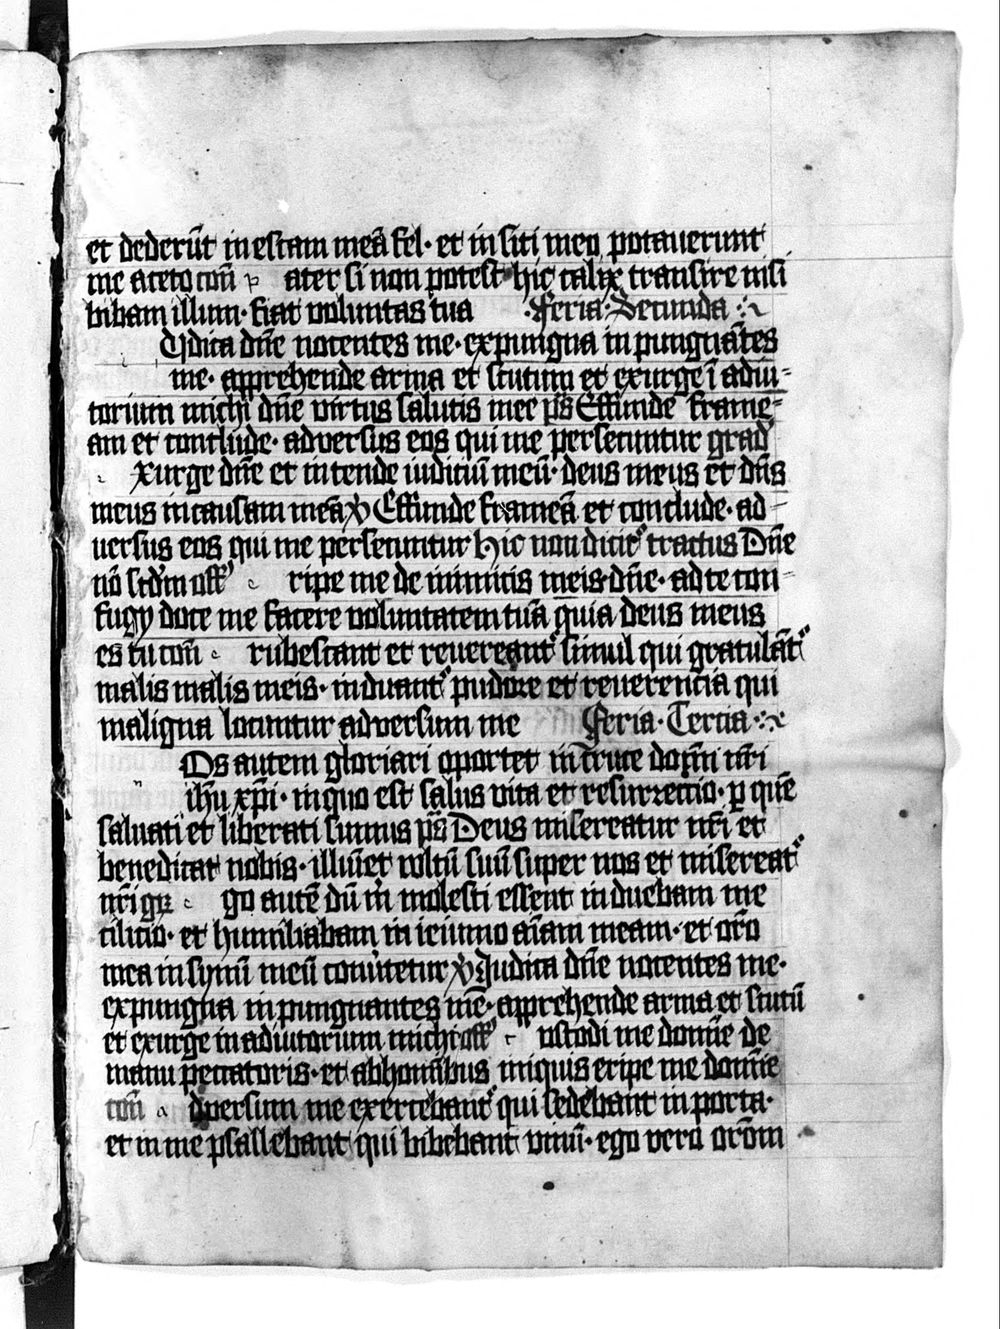 et dederūt in escam meā fel· et in siti mea potauerunt
me aceto cōn p ater si non potest hic calix transire nisi
bibam illum· fiat voluntas tua ·Feria·Secunda
Udica dn̄e nocentes me· expungna in pungnātes
me· apprehende arma et scutum et exurge ī adiu-
torium michi dn̄e virtus salutis mee ps̄ Effunde frame-
am et conclude· adversus eos qui me persecuntur grad̄
xurge dn̄e et intende iudiciū meū· deus meus et dn̄s
meus in causam meā ꝟ Effunde frameā et conclude· ad-
uersus eos qui me persecuntur Hic non dicit᷑ tractus Dn̄e
nō scd̄m off̄ e ripe me de inimicis meis· dn̄e· ad te con-
fugy doce me facere voluntatem tuā quia deus meus
es tu cōn e rubescant et reuereant᷑ simul qui gratulāt᷑
malis malis meis· induant᷑ pudore et reuerencia qui
maligna locuntur adversum me Feria·Tercia
Os autem gloriari oportet in cruce domī nr̄i
ih̄u xp̄i· in quo est salus vita et resurrectio· ꝑ quē
saluati et liberati sumus ps̄ Deus misereatur nr̄i et
benedicat nobis· illūīet vultū suū super nos et misereat᷑
nr̄i gr̄ e go autē dū m̄ molesti essent induebam me
cilicio· et humiliabam in ieiunio aīam meam· et or̄o
mea in synū meū conūtetur ꝟ Iudica dn̄e nocentes me·
expungna inpungnantes mē· apprehende arma et scutū
et exurge in adiutorium michi off̄ c ustodi me domīe de
manu peccatoris· et ab hoīībus iniquis eripe me domīe
cōn a dversum me exercebant᷑ qui sedebant in porta·
et in me psallebant qui bibebant vinū· ego vero or̄om